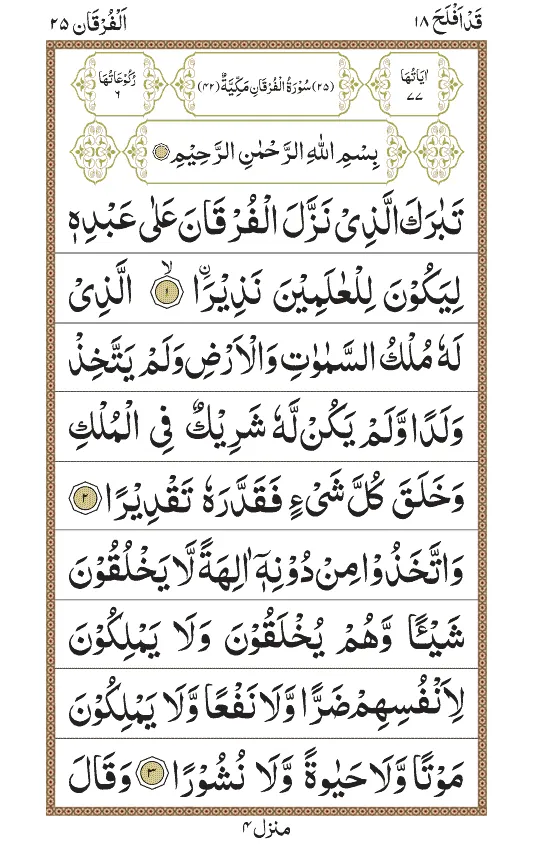 قَدْ اَفْلَحَ ١٨
اَلْفُرْقَان ٢٥
اٰيَاتُهَا ٧٧
(٢٥) سُوْرَةُ الْفُرْقَانِ مَكِّيَّةٌ (٤٢)
رُكُوْعَاتُهَا ٦
بِسْمِ اللّٰهِ الرَّحْمٰنِ الرَّحِيْمِ
تَبٰرَكَ الَّذِىْ نَزَّلَ الْفُرْقَانَ عَلٰى عَبْدِهٖ
لِيَكُوْنَ لِلْعٰلَمِيْنَ نَذِيْرًا ۙ﴿١﴾ اۨلَّذِىْ
لَهٗ مُلْكُ السَّمٰوٰتِ وَالْاَرْضِ وَلَمْ يَتَّخِذْ
وَلَدًا وَّلَمْ يَكُنْ لَّهٗ شَرِيْكٌ فِى الْمُلْكِ
وَخَلَقَ كُلَّ شَىْءٍ فَقَدَّرَهٗ تَقْدِيْرًا ﴿٢﴾
وَاتَّخَذُوْا مِنْ دُوْنِهٖۤ اٰلِهَةً لَّا يَخْلُقُوْنَ
شَيْــًٔا وَّهُمْ يُخْلَقُوْنَ وَلَا يَمْلِكُوْنَ
لِاَنْفُسِهِمْ ضَرًّا وَّلَا نَفْعًا وَّلَا يَمْلِكُوْنَ
مَوْتًا وَّلَا حَيٰوةً وَّلَا نُشُوْرًا ﴿٣﴾ وَقَالَ
منزل ٤